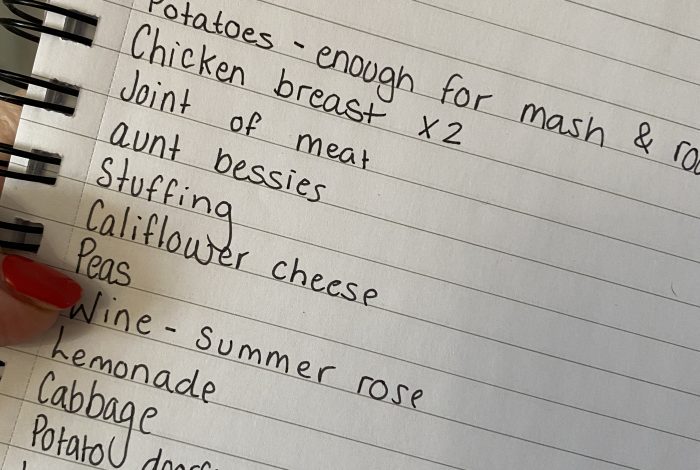 Potatoes - enough for mash &
Chicken breast x2
Joint of meat
aunt bessies
Stuffing
Califlower cheese
Peas
Wine - Summer rose
Lemonade
Cabbage